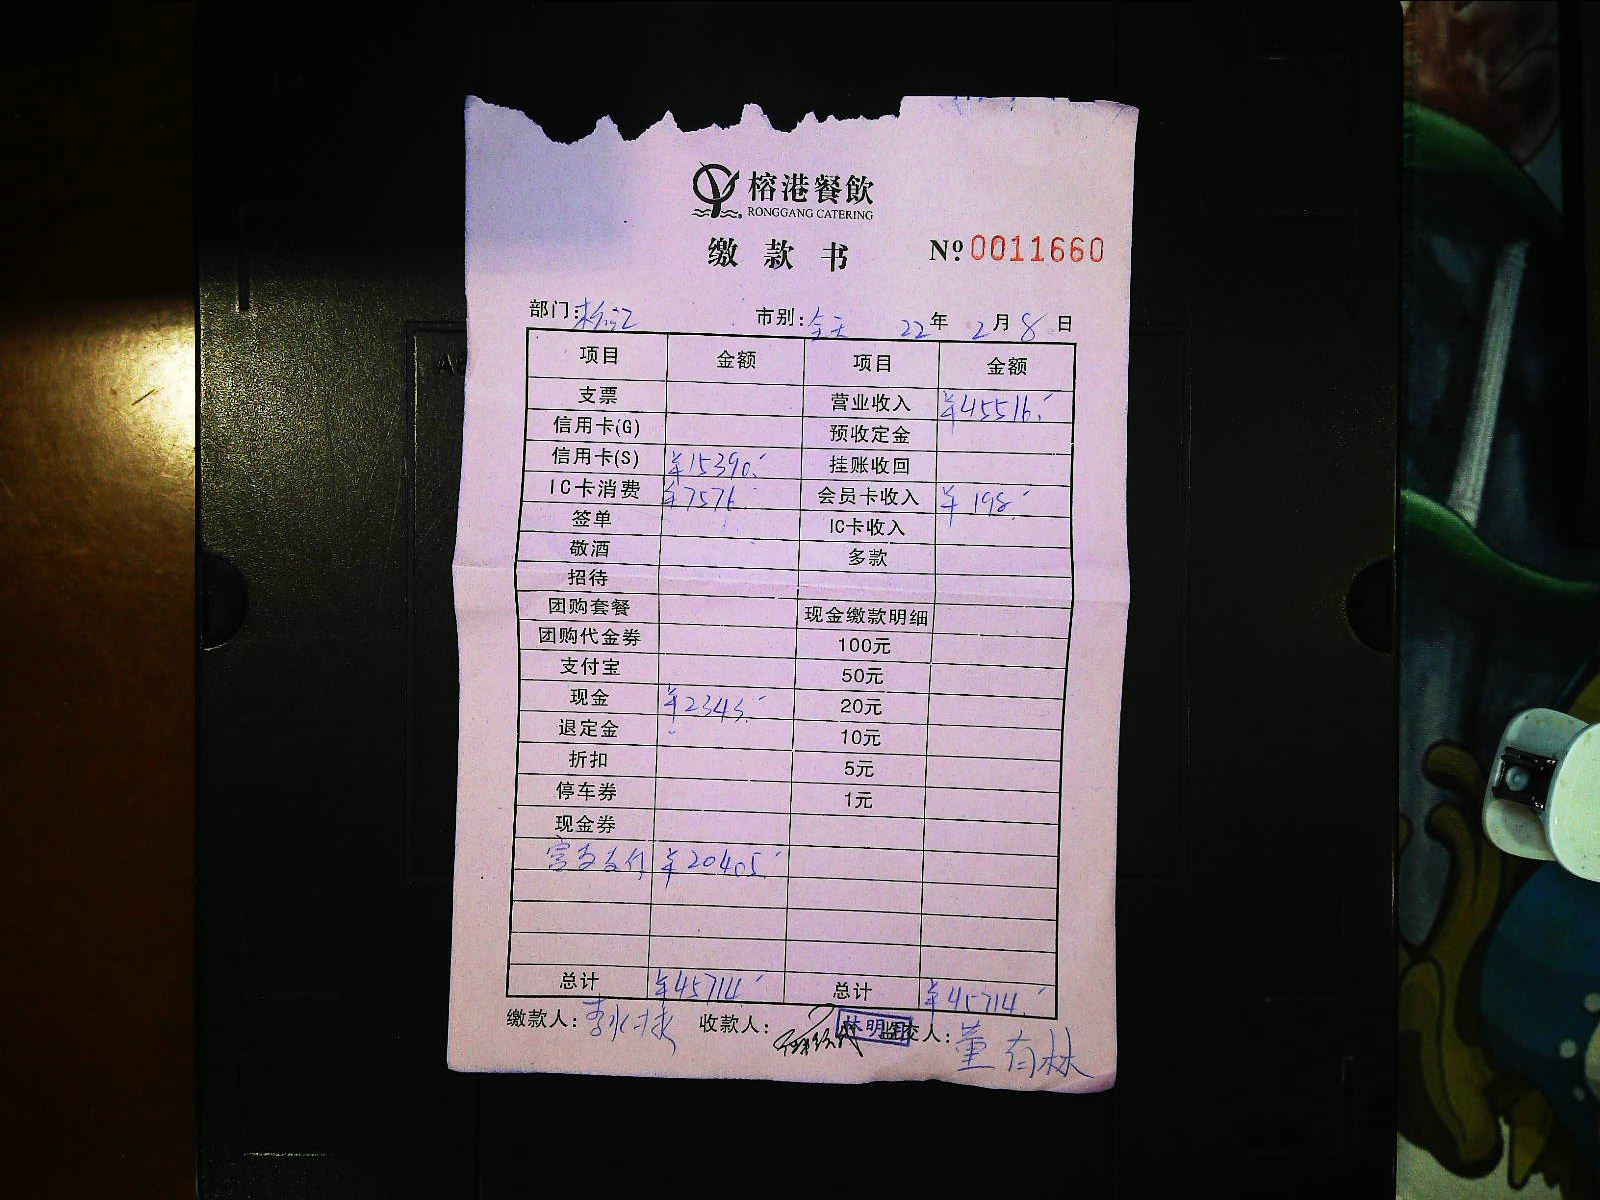 榕港餐飲
RONGGANG CATERING
缴款书 № 0011660
部门: 市别: 全天 22年 2月 8日
项目 金额 项目 金额
支票 营业收入 ¥45516.-
信用卡(G) 预收定金
信用卡(S) ¥15390.- 挂账收回
IC卡消费 ¥7576.- 会员卡收入 ¥198.-
签单 IC卡收入
敬酒 多款
招待
团购套餐 现金缴款明细
团购代金券 100元
支付宝 50元
现金 ¥2343.- 20元
退定金 10元
折扣 5元
停车券 1元
现金券
¥20405.-
总计 ¥45714.- 总计 ¥45714.-
缴款人: 收款人: 林明 监交人: 董有林